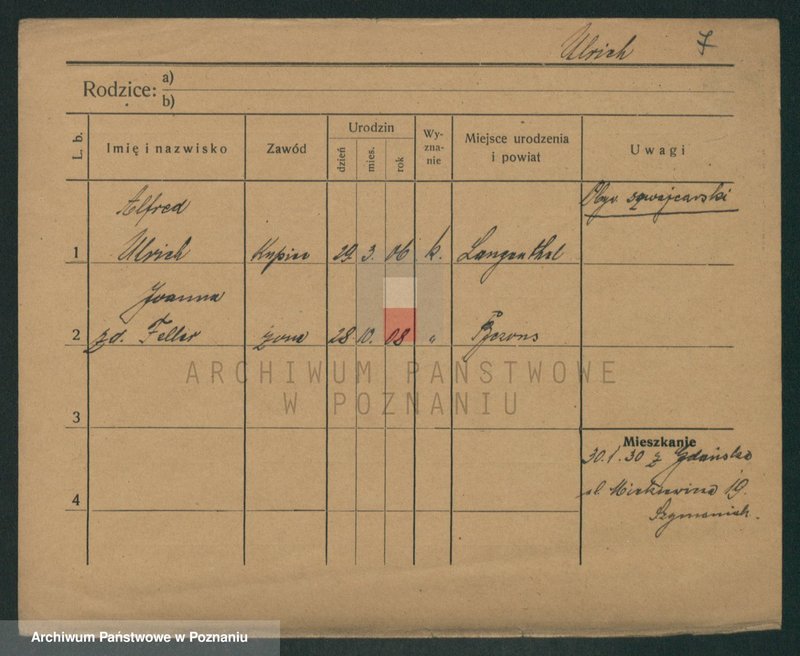 Ulrich 7
Rodzice: a)
b)
L. b. Imię i nazwisko Zawód Urodzin dzień mies. rok Wy-zna-nie Miejsce urodzenia i powiat Uwagi
Alfred
Obyw. szwajcarski
1 Ulrich Kupiec 29 3. 06 k. Langenthal
Joanna
2 zd. Feller żona 28 10. 08 "
ARCHIWUM PAŃSTWOWE
W POZNANIU
3
Mieszkanie
30.1.30 z Gdańska
4 ul. Mickiewicza 19
Szymaniak.
Archiwum Państwowe w Poznaniu